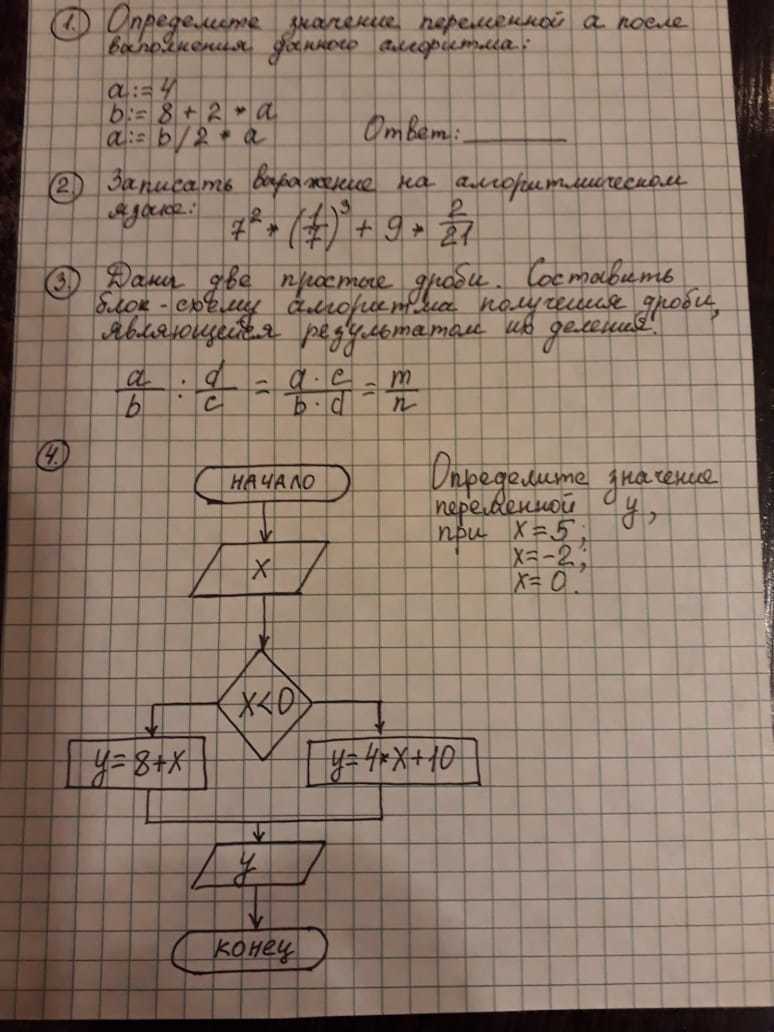 1. Определите значение переменной a после
выполнения данного алгоритма:
a:=4
b:= 8 + 2 * a
a:= b/2 * a
Ответ:________
2. Записать выражение на алгоритмическом
языке:
7² * (1/7)³ + 9 * 2/21
3. Даны две простые дроби. Составить
блок-схему алгоритма получения дроби,
являющейся результатом их деления.
a/b : d/c = a·c/b·d = m/n
4.
НАЧАЛО
Определите значение
переменной y,
при x=5;
x=-2;
x=0.
X
X<0
y=8+X
y=4*X+10
y
КОНЕЦ